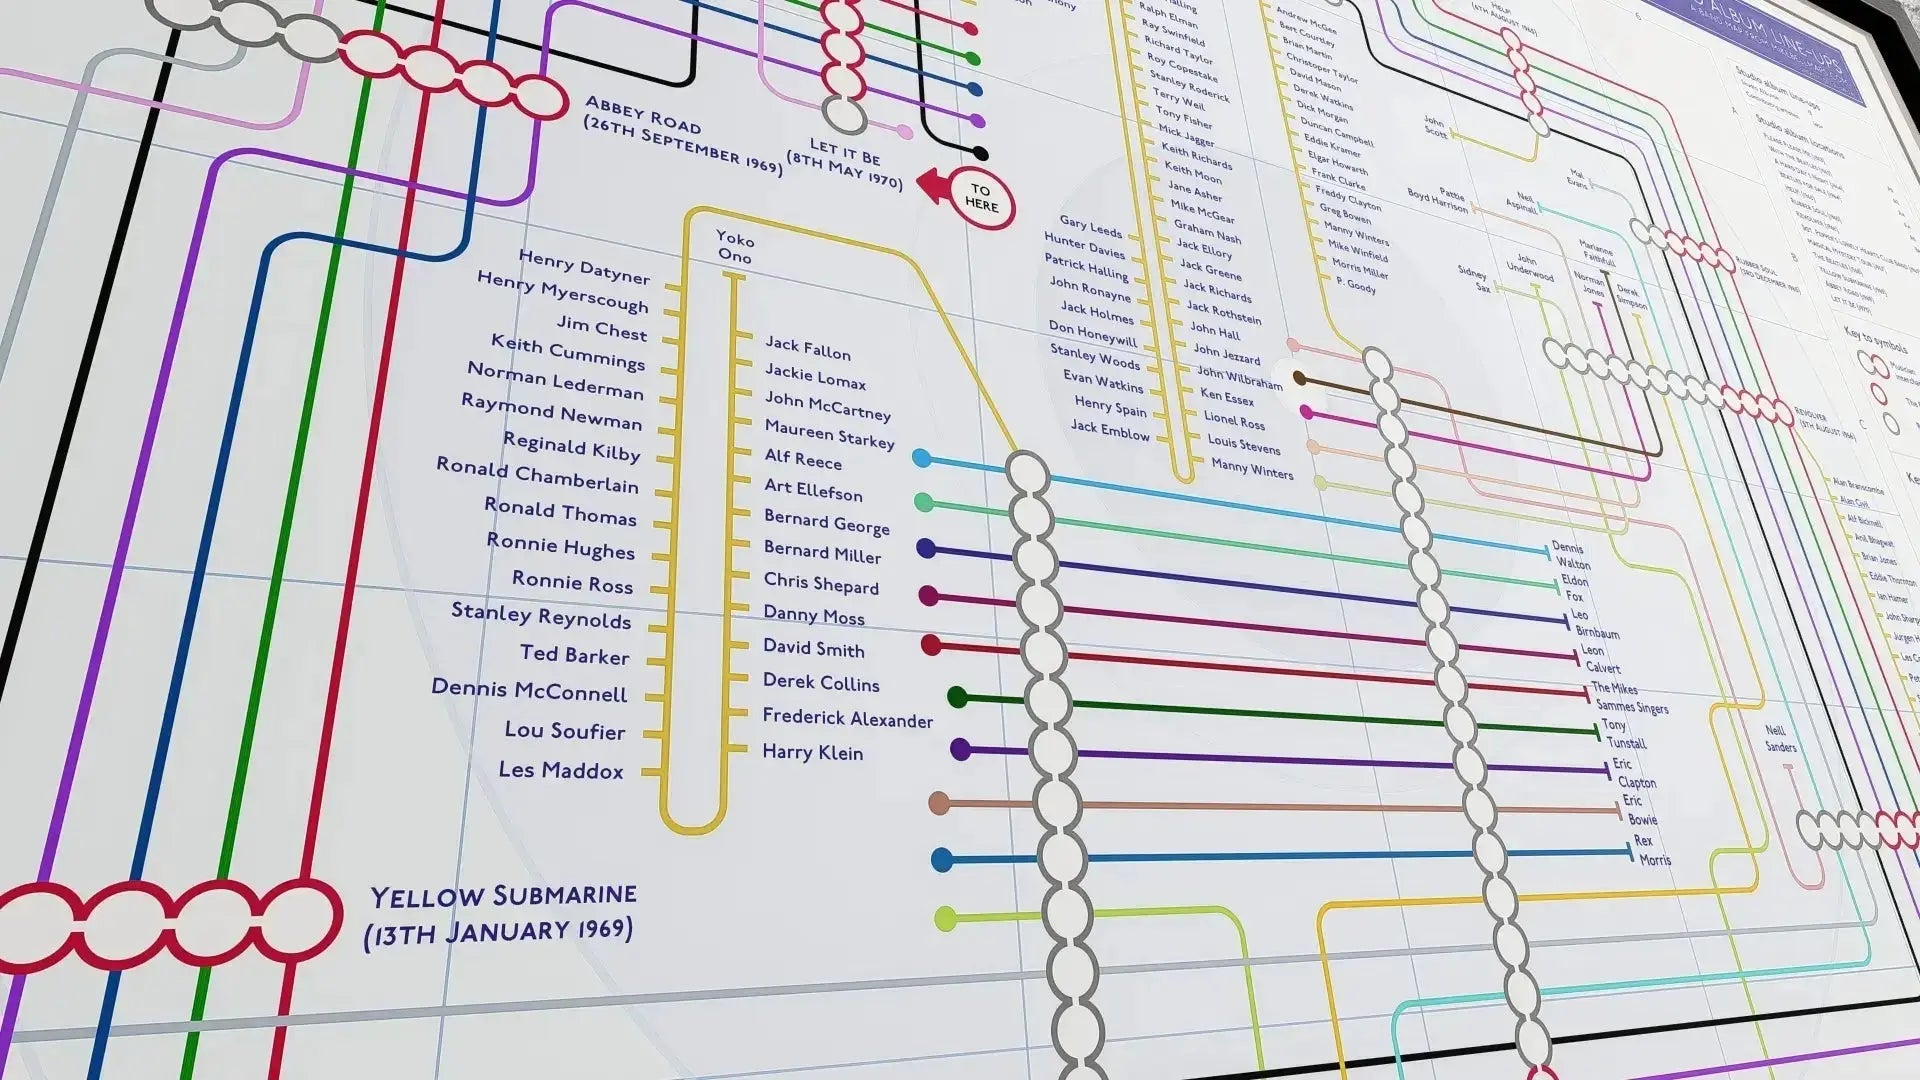 Abbey Road
(26th September 1969)
Let It Be
(8th May 1970)
TO
HERE
Yoko
Ono
Henry Datyner
Henry Myerscough
Jim Chest
Keith Cummings
Norman Lederman
Raymond Newman
Reginald Kilby
Ronald Chamberlain
Ronald Thomas
Ronnie Hughes
Ronnie Ross
Stanley Reynolds
Ted Barker
Dennis McConnell
Lou Soufier
Les Maddox
Jack Fallon
Jackie Lomax
John McCartney
Maureen Starkey
Alf Reece
Art Ellefson
Bernard George
Bernard Miller
Chris Shepard
Danny Moss
David Smith
Derek Collins
Frederick Alexander
Harry Klein
Yellow Submarine
(13th January 1969)
Gary Leeds
Hunter Davies
Patrick Halling
John Ronayne
Jack Holmes
Don Honeywill
Stanley Woods
Evan Watkins
Henry Spain
Jack Emblow
Ralph Elman
Ray Swinfield
Richard Taylor
Roy Copestake
Stanley Roderick
Terry Weil
Tony Fisher
Mick Jagger
Keith Richards
Keith Moon
Jane Asher
Mike McGear
Graham Nash
Jack Ellory
Jack Greene
Jack Richards
Jack Rothstein
John Hall
John Jezzard
John Wilbraham
Ken Essex
Lionel Ross
Louis Stevens
Manny Winters
Andrew McGee
Bert Courtley
Brian Martin
Christoper Taylor
David Mason
Derek Watkins
Dick Morgan
Duncan Campbell
Eddie Kramer
Elgar Howarth
Frank Clarke
Freddy Clayton
Greg Bowen
Manny Winters
Mike Winfield
Morris Miller
P. Goody
Help!
(6th August 1965)
John
Scott
Mal
Evans
Pattie
Boyd Harrison
Neil
Aspinall
Sidney
Sax
John
Underwood
Marianne
Faithfull
Norman
Jones
Derek
Simpson
Rubber Soul
(3rd December 1965)
Revolver
(5th August 1966)
Dennis
Walton
Eldon
Fox
Leo
Birnbaum
Leon
Calvert
The Mikes
Sammes Singers
Tony
Tunstall
Eric
Clapton
Eric
Bowie
Rex
Morris
Neill
Sanders
Alan Branscombe
Alan Civil
Alf Bicknell
Anil Bhagwat
Brian Jones
Eddie Thornton
Ian Hamer
Studio album line-ups
Studio album locations
Key to symbols